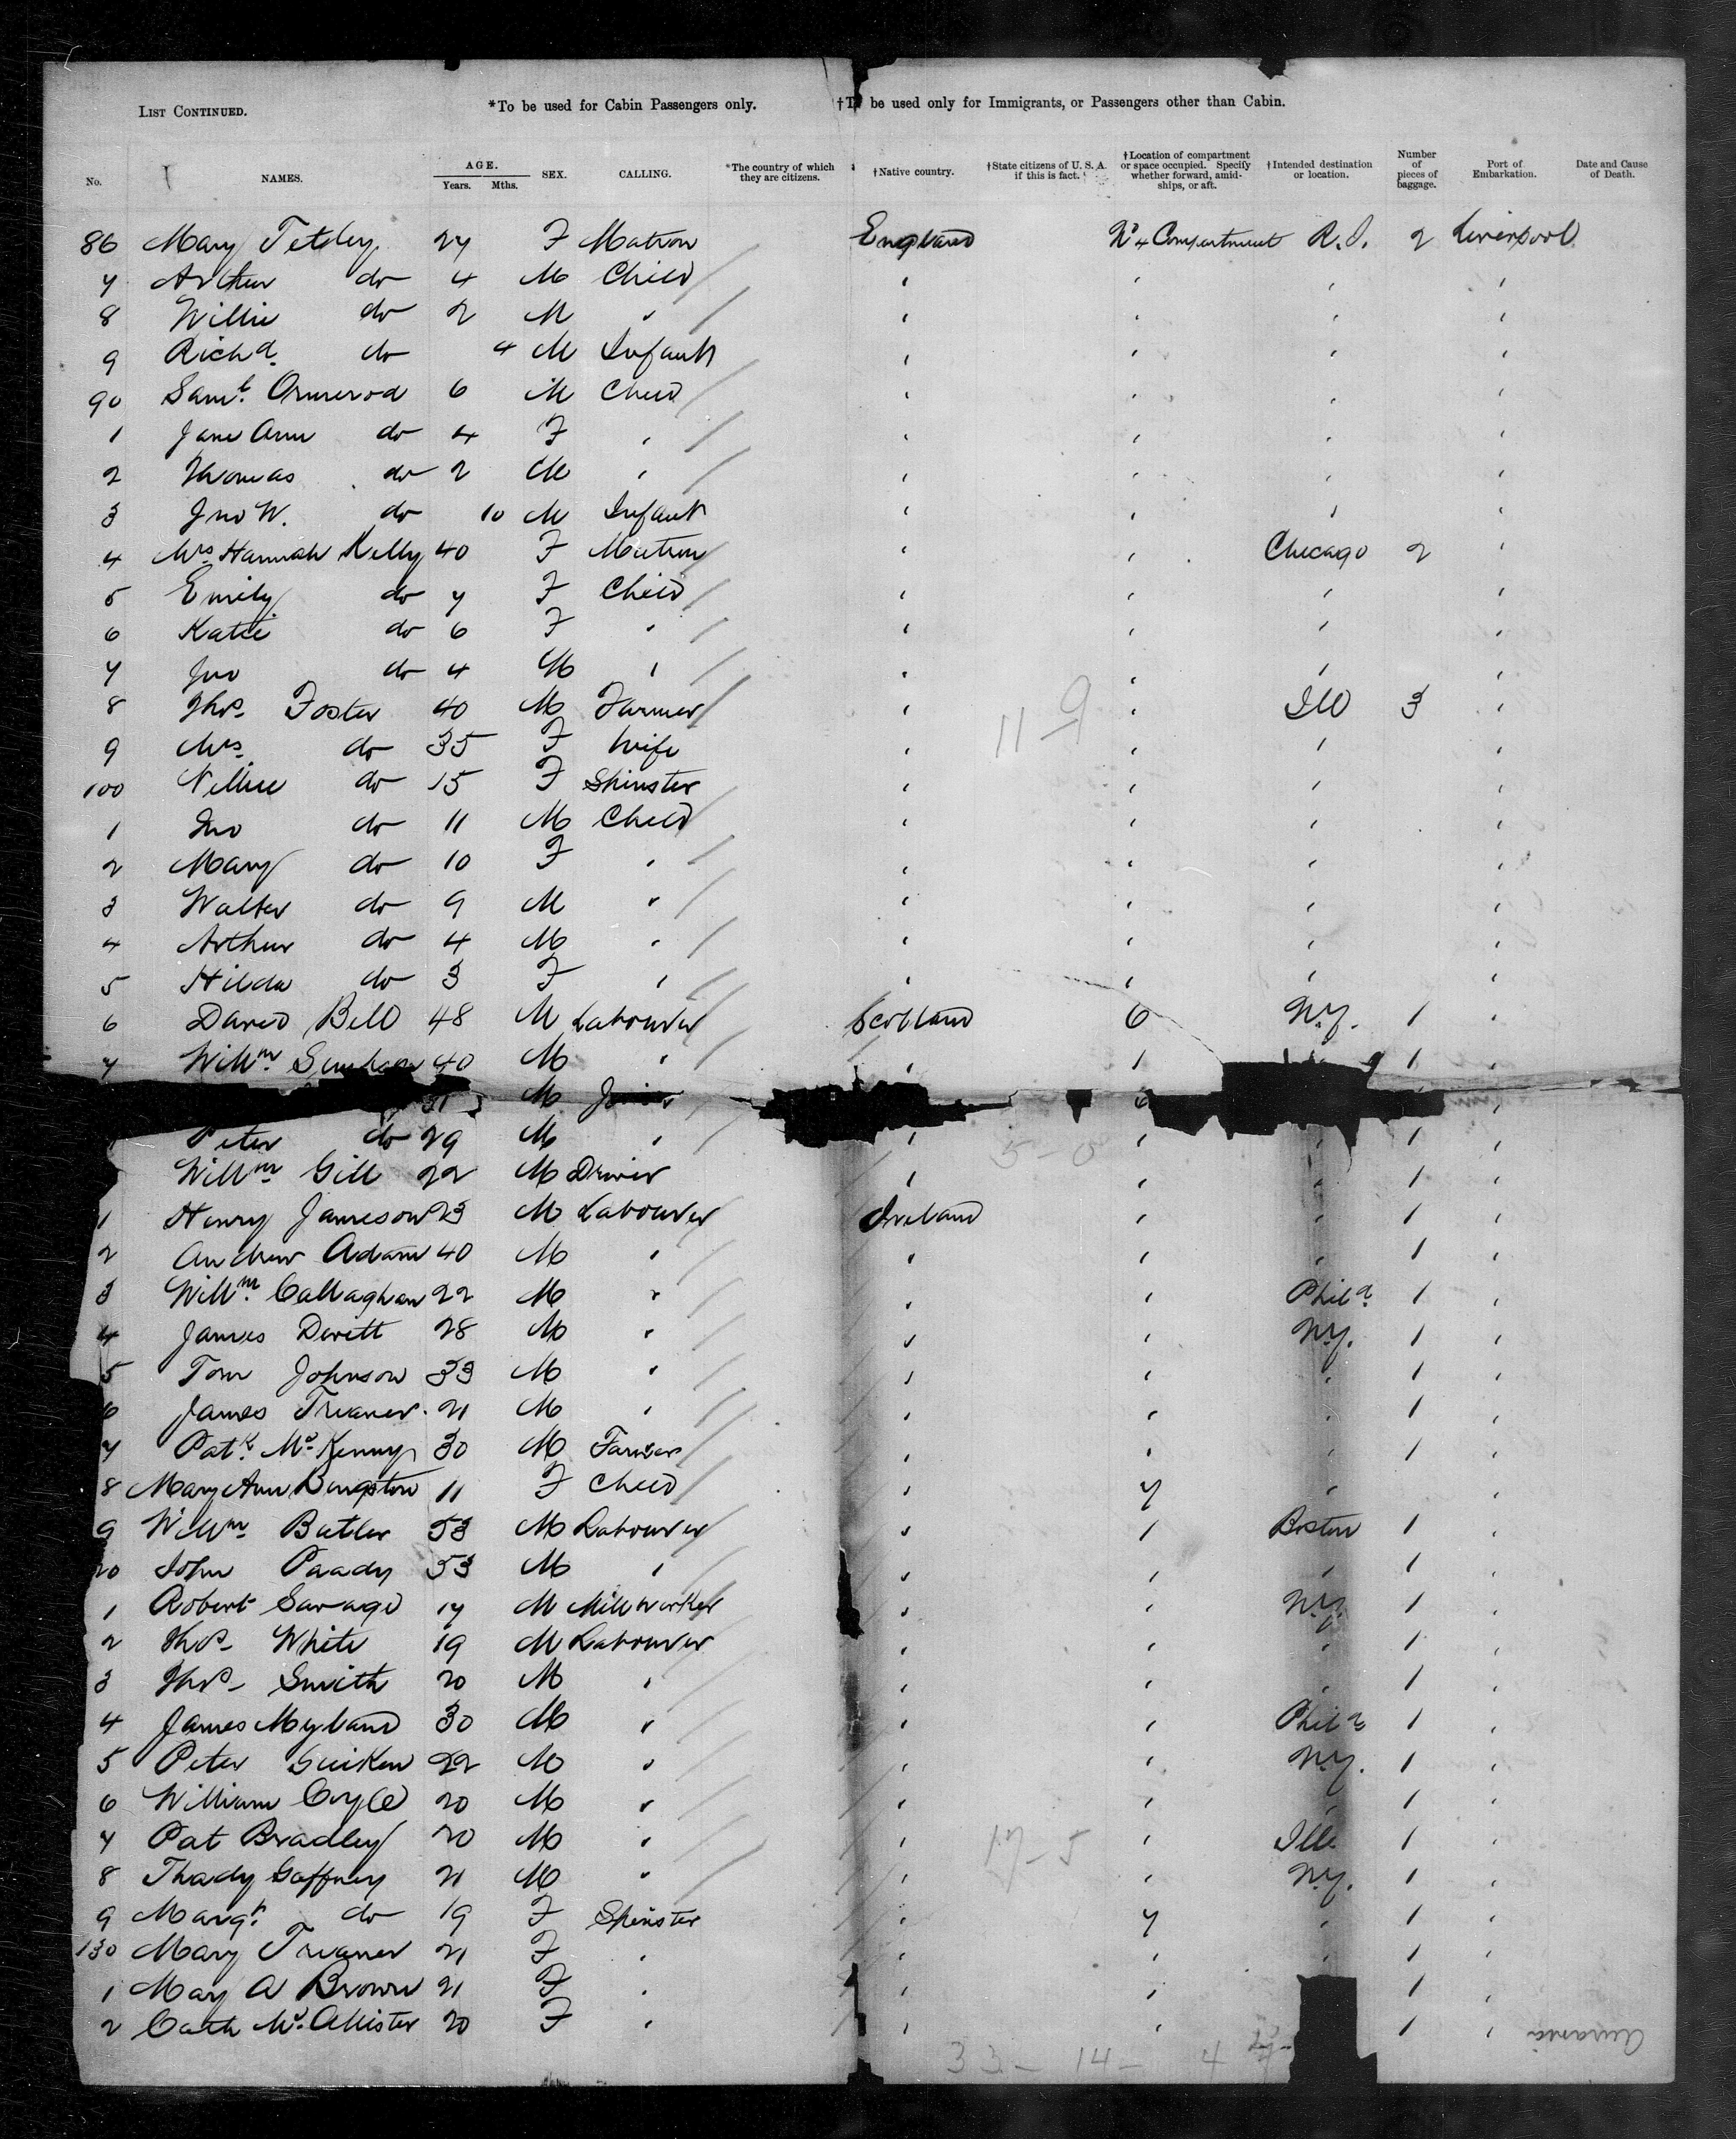 LIST CONTINUED. *To be used for Cabin Passengers only. †To be used only for Immigrants, or Passengers other than Cabin.
No. NAMES. AGE. Years. Mths. SEX. CALLING. *The country of which they are citizens. †Native country. †State citizens of U. S. A. if this is fact. †Location of compartment or space occupied. Specify whether forward, amidships, or aft. †Intended destination or location. Number of pieces of baggage. Port of Embarkation. Date and Cause of Death.
86 Mary Tetley 27 F Matron England No 4 Compartment R.I. 2 Liverpool
7 Arthur do 4 M Child
8 Willie do 2 M "
9 Richd do 4 M Infant
90 Saml Ormerod 6 M Child
1 Jane Ann do 4 F "
2 Thomas do 2 M "
3 Jno W. do 10 M Infant
4 Mrs Hannah Kelly 40 F Matron Chicago 2
5 Emily do 7 F Child
6 Katie do 6 F "
7 Jno do 4 M "
8 Thos Foster 40 M Farmer Ill 3
9 Mrs do 35 F Wife
11 9
100 Nellie do 15 F Spinster
1 Jno do 11 M Child
2 Mary do 10 F "
3 Walter do 9 M "
4 Arthur do 4 M "
5 Hilda do 3 F "
6 David Bell 48 M Labourer Scotland 6 N.Y. 1
7 Willm 40 M " 1
31 M
Peter do 29 M " 1
5-0
Willm Gill 22 M 1
1 Henry Jameson 23 M Labourer Ireland 1
2 Andrew Adam 40 M " 1
3 Willm Callaghan 22 M " Phila 1
4 James Devitt 28 M " N.Y. 1
5 Tom Johnson 33 M " 1
6 James Treanor 21 M " 1
7 Patk McKenny 30 M Farmer 1
8 Mary Ann 11 F Child 7
9 Willm Butler 53 M Labourer Boston 1
20 John 53 M " 1
1 Robert Savage 17 M Millworker N.Y. 1
2 Thos White 19 M Labourer 1
3 Thos Smith 20 M " 1
4 James 30 M " Phila 1
5 Peter 22 M " N.Y. 1
6 William Coyle 20 M " 1
7 Pat Bradley 20 M " 17-5 Ill. 1
8 Thady Gaffney 21 M " N.Y. 1
9 Margt do 19 F Spinster 7 1
130 Mary Treanor 21 F " 1
1 Mary A Brown 21 F " 1
2 Cath McAllister 20 F " 1
Aurania
33- 14- 4